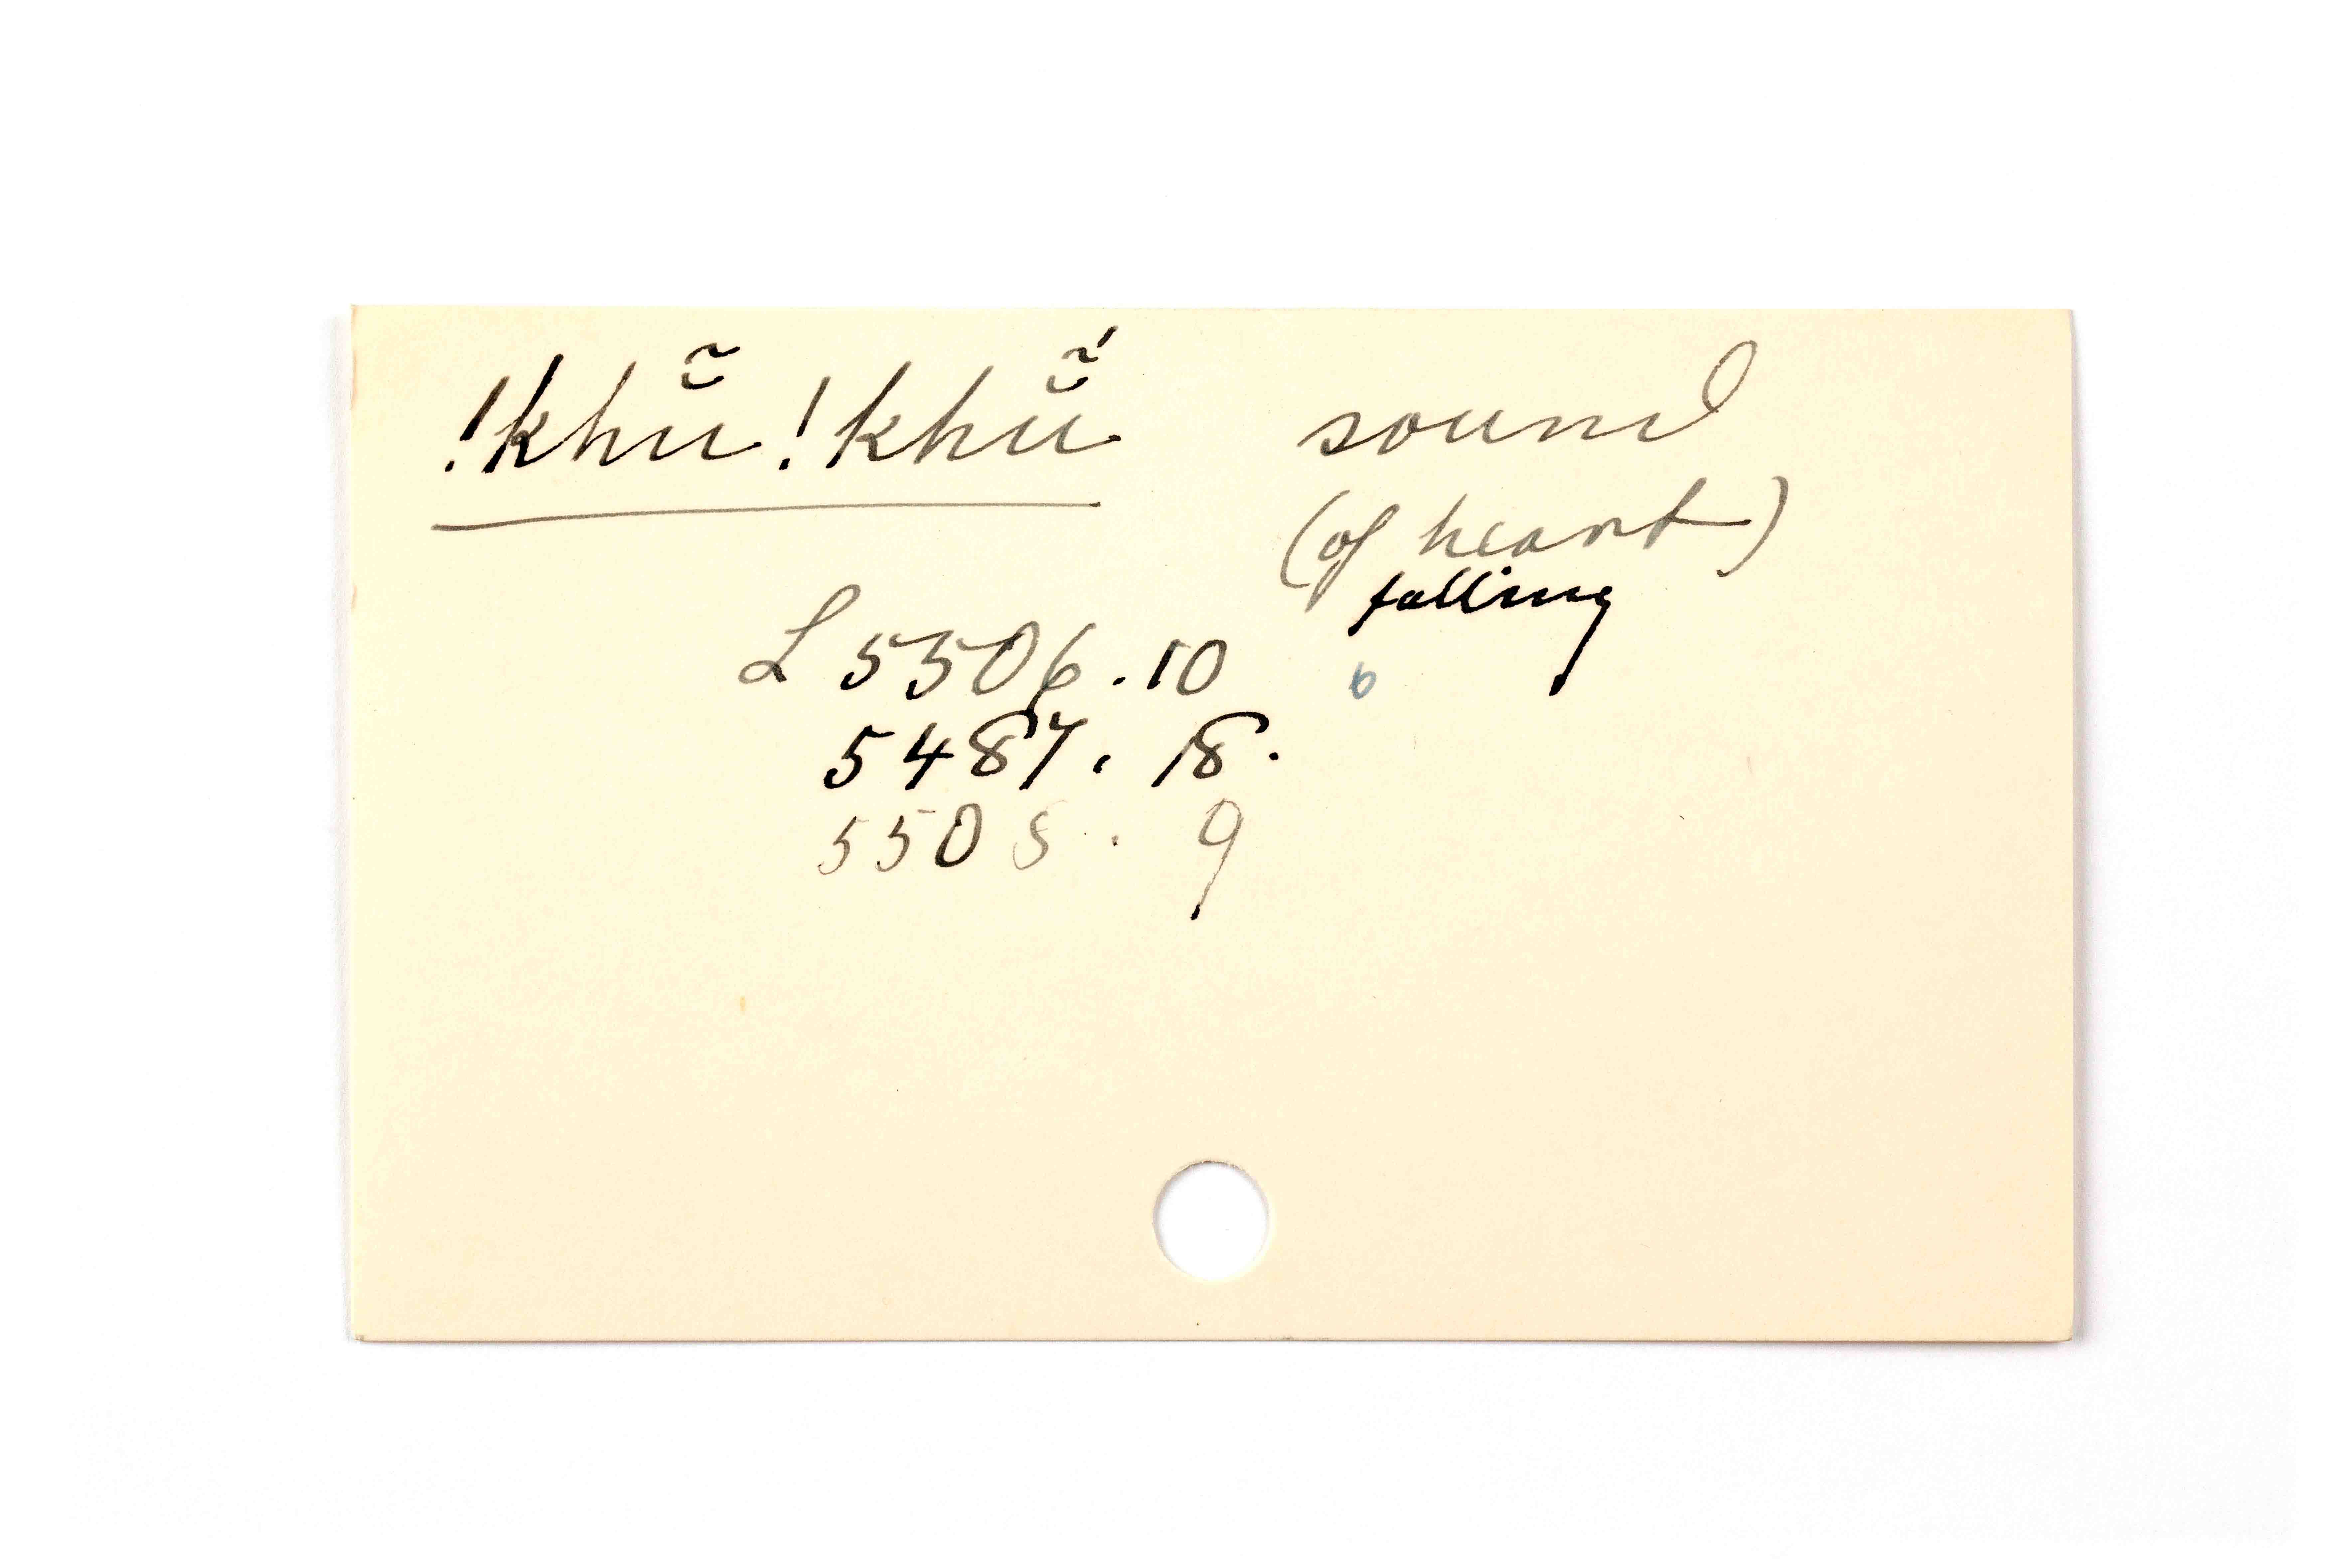 !khŭ̃!khŭ̃́ sound
(of heart)
falling
L 5506.10 6
5487. 18.
5505. 9